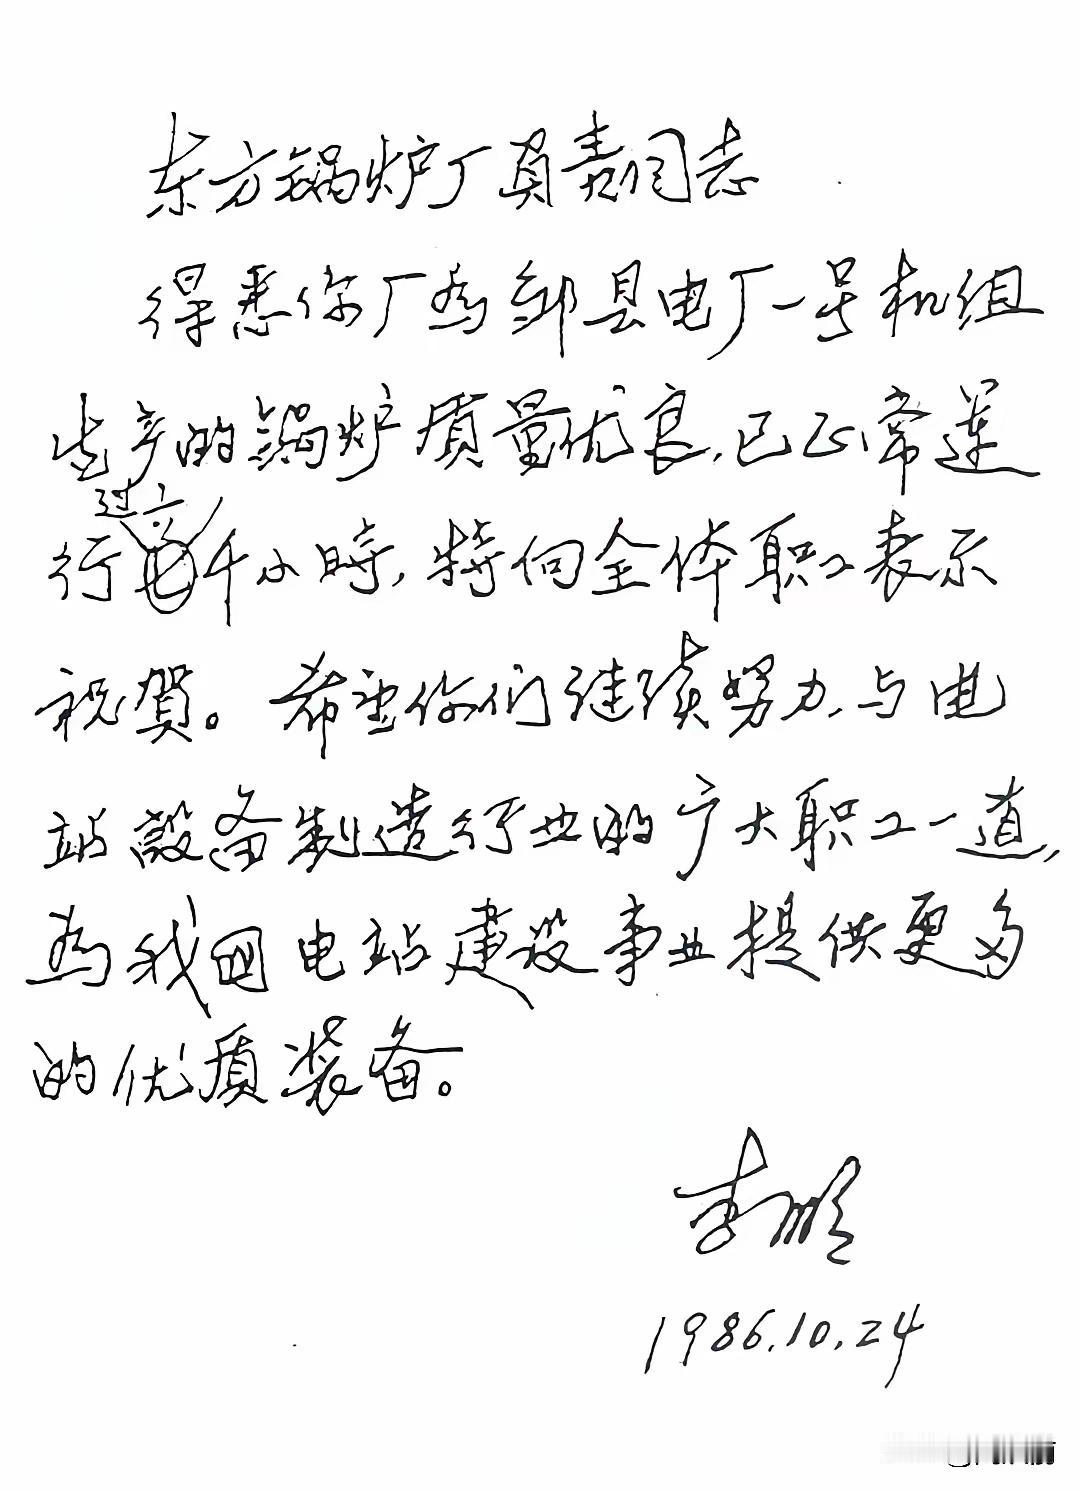 东方锅炉厂负责同志
得悉你厂为邹县电厂一号机组
生产的锅炉质量优良,已正常运
过六
行千小時,特向全体职工表示
祝贺。希望你们继续努力,与电
站設备制造行业的广大职工一道,
为我国电站建设事业提供更多
的优质装备。
李鹏
1986.10.24